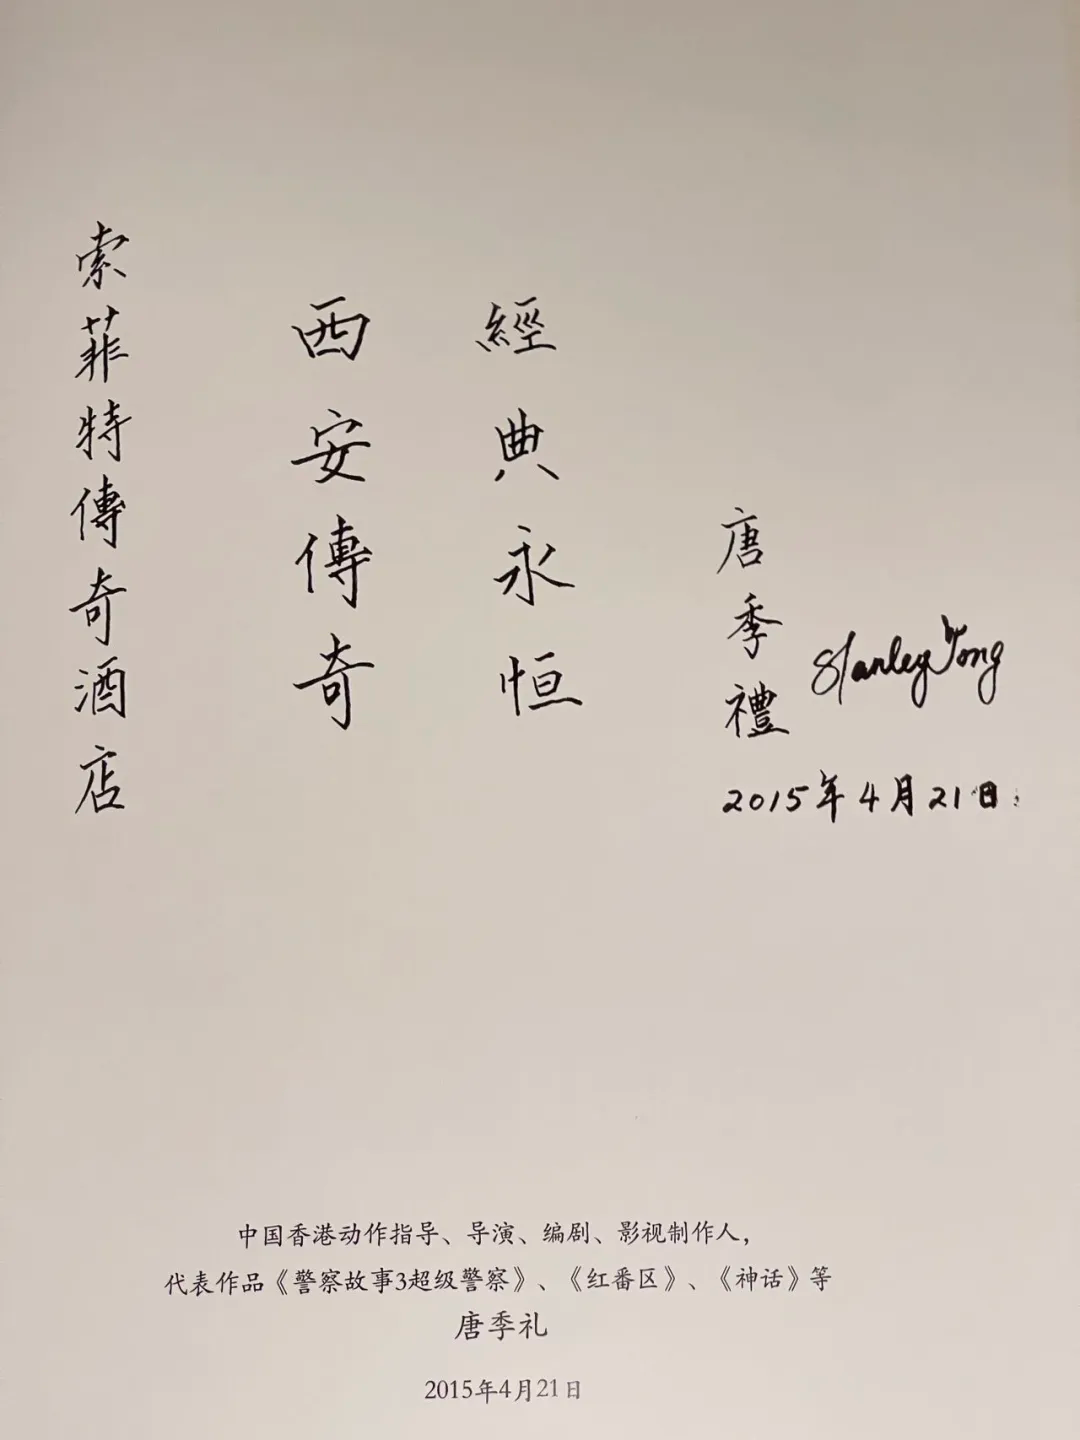 索菲特傳奇酒店
西安傳奇
經典永恒
唐季禮
Stanley Tong
2015年4月21日
中国香港动作指导、导演、编剧、影视制作人，
代表作品《警察故事3超级警察》、《红番区》、《神话》等
唐季礼
2015年4月21日